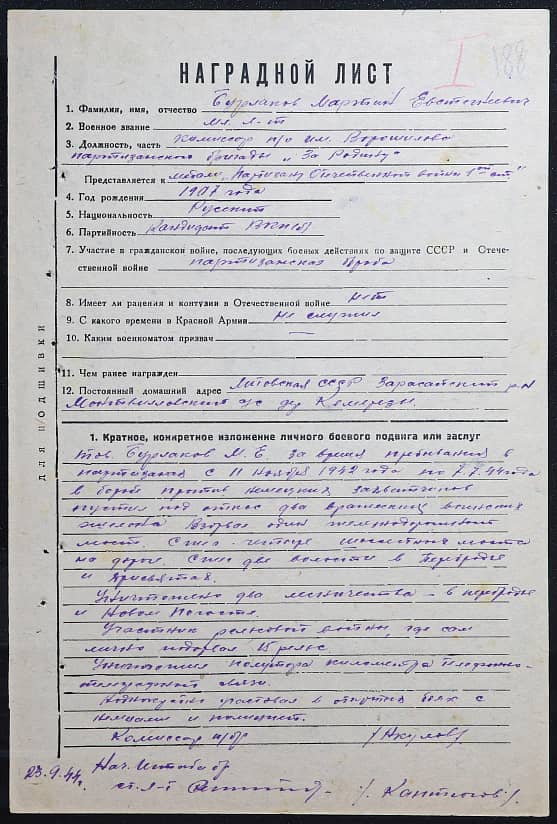 I 188
НАГРАДНОЙ ЛИСТ
1. Фамилия, имя, отчество Бурлаков Мартин Евстегневич
2. Военное звание мл. л-т
3. Должность, часть Комиссар п/о им. Ворошилова
партизанской бригады „За Родину"
Представляется к медали „Партизану Отечественной войны 1ой ст."
4. Год рождения 1907 года
5. Национальность Русский
6. Партийность Кандидат ВКП(б)
7. Участие в гражданской войне, последующих боевых действиях по защите СССР и Отече-
ственной войне партизанская борьба
8. Имеет ли ранения и контузии в Отечественной войне нет
9. С какого времени в Красной Армии Не служил
10. Каким военкоматом призван —
11. Чем ранее награжден
12. Постоянный домашний адрес Литовская ССР Зарасайский р-н
с/с дер
ДЛЯ ПОДШИВКИ
1. Краткое, конкретное изложение личного боевого подвига или заслуг
Тов. Бурлаков М. Е. за время пребывания в
партизанах с 11 ноября 1942 года по 7.7.44 года
в борьбе против немецких захватчиков
пустил под откос два вражеских воинских
эшелона Взорвал один железнодорожный
мост. Сжег четыре моста
на дороге. Сжег две волости в Перебродье
и
Уничтожено два лесничества – в Перебродье
и Новом Погосте.
Участник рельсовой войны, где сам
лично подорвал 15 рельс
Уничтожил полтора километра телефонно-
телеграфной связи.
Неоднократно участвовал в открытых боях с
немцами и полицией.
Комиссар п/бр /Акулов/
23.9.44г. Нач. Штаба бр
ст. л-т